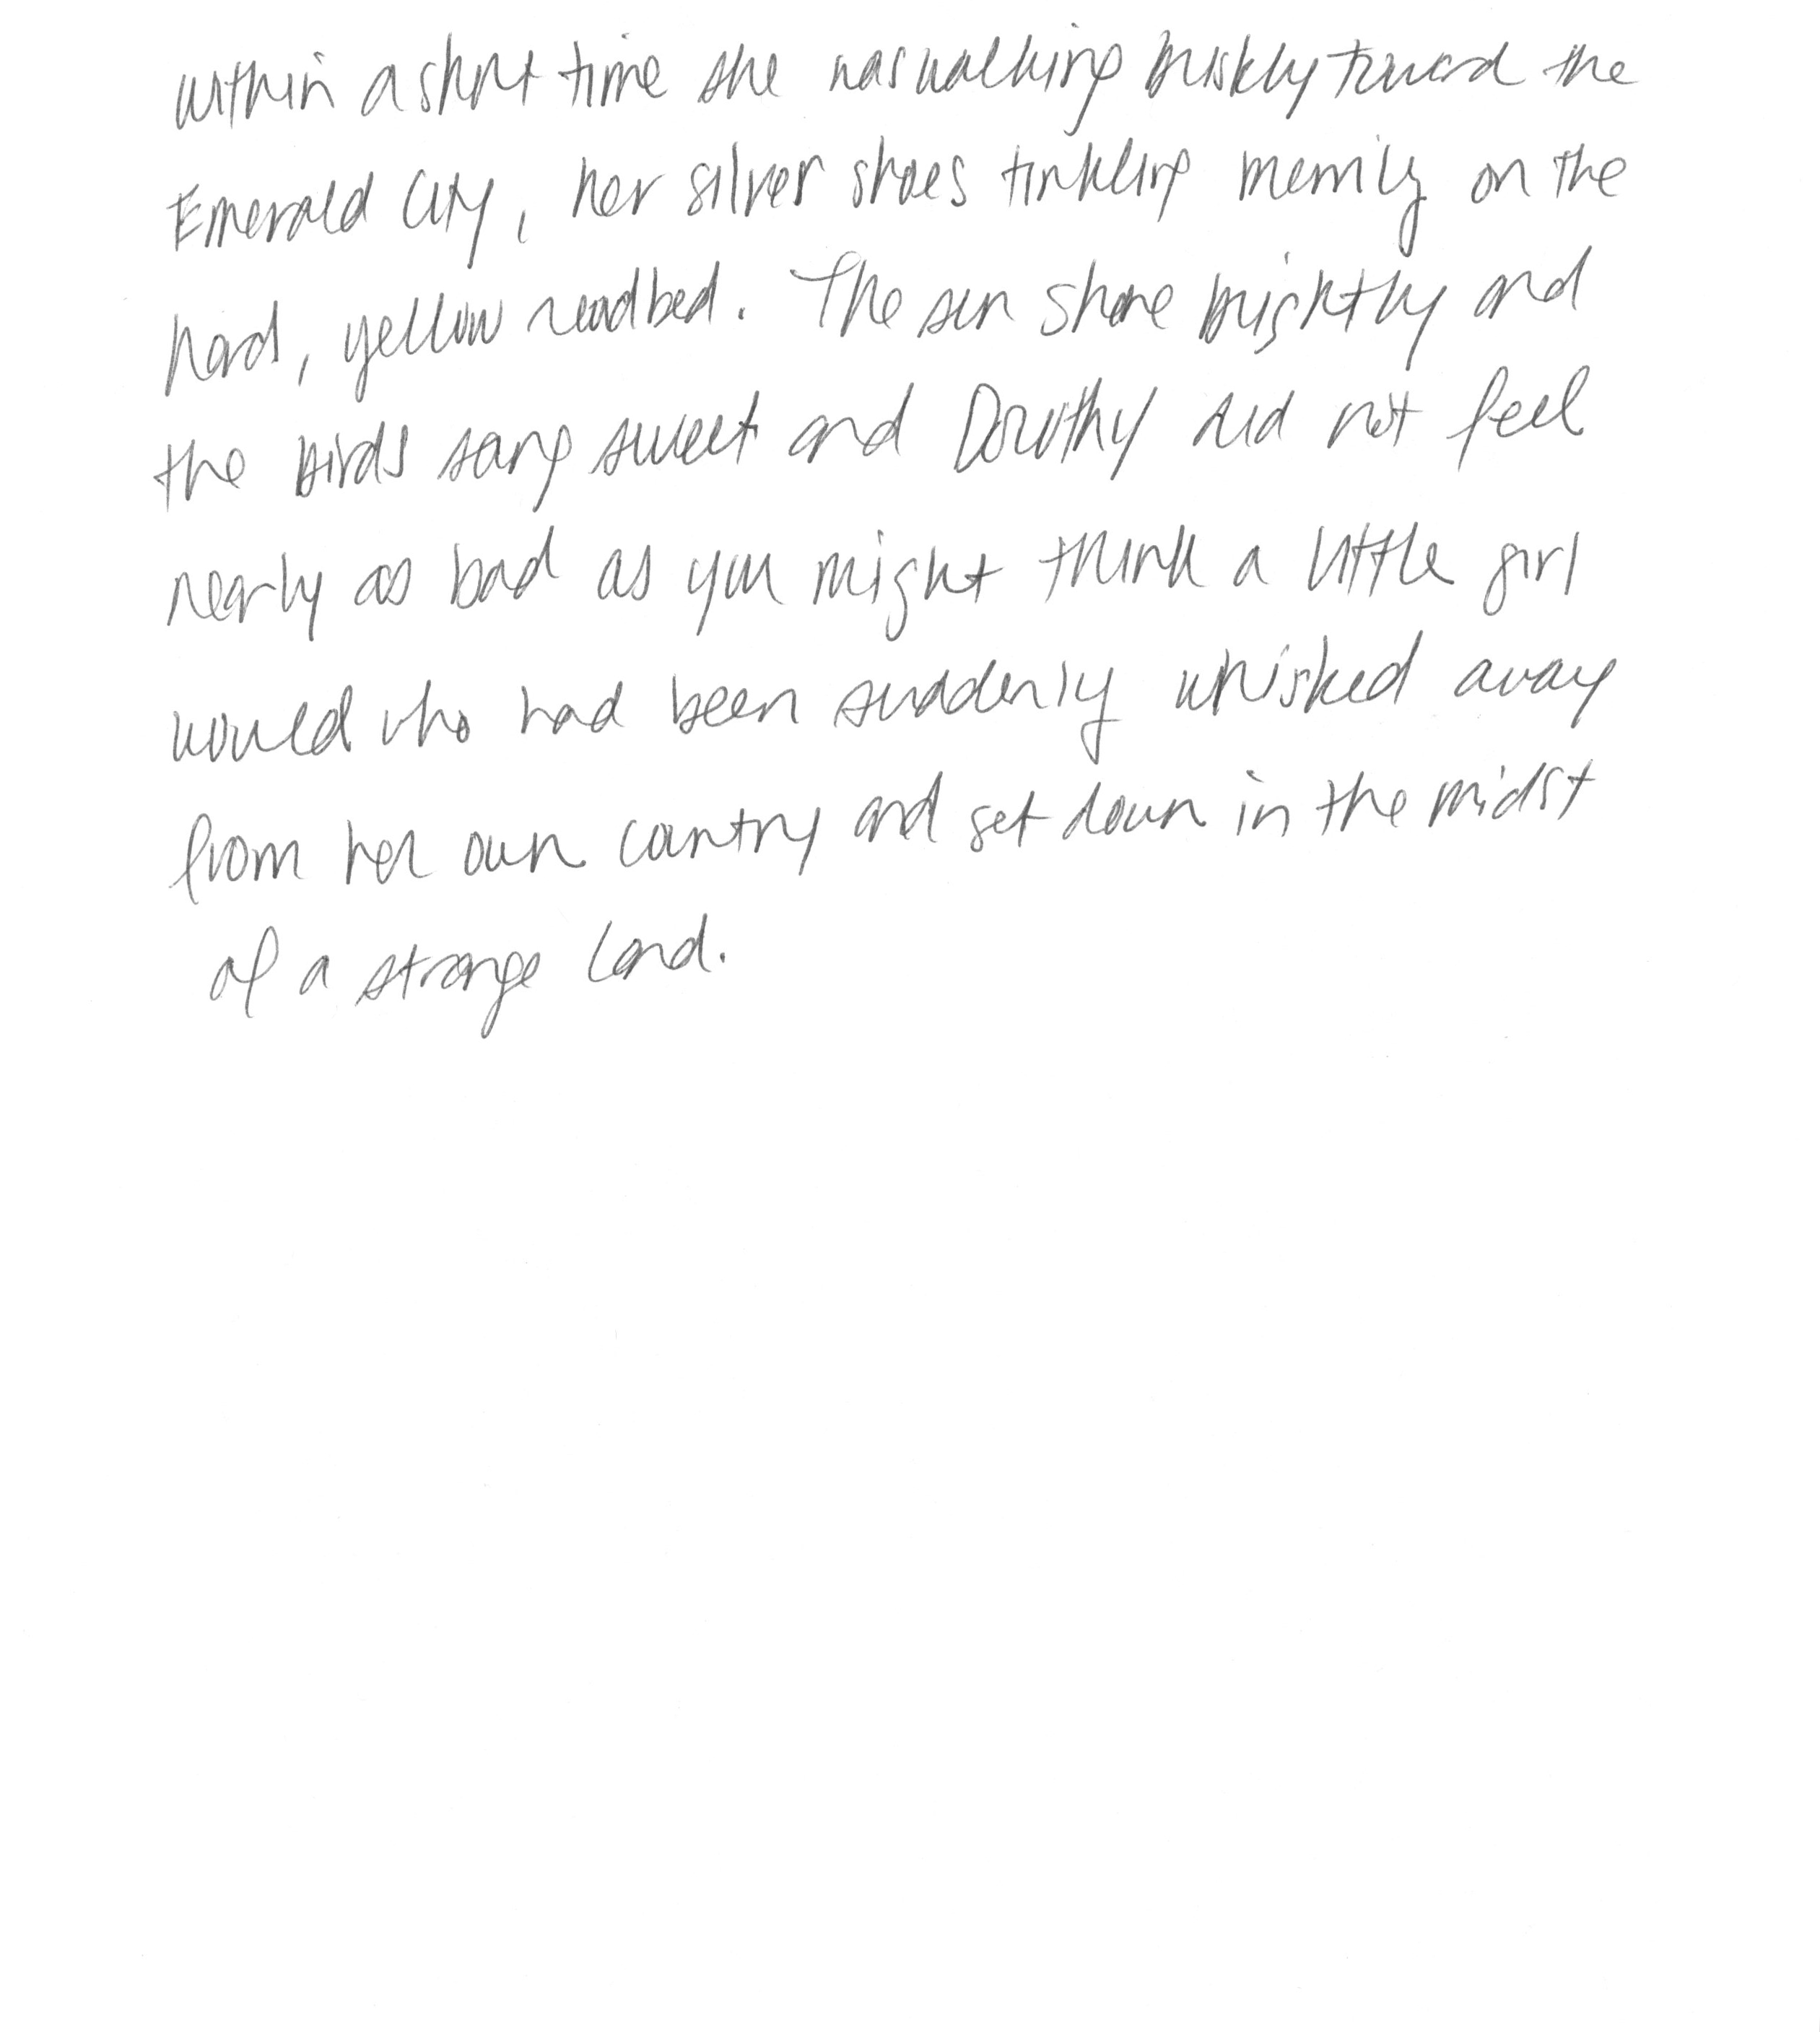 within a short time she was walking briskly toward the
Emerald City, her silver shoes tinkling merrily on the
hard, yellow roadbed. The sun shone brightly and
the birds sang sweet and Dorothy did not feel
nearly as bad as you might think a little girl
would who had been suddenly whisked away
from her own country and set down in the midst
of a strange land.